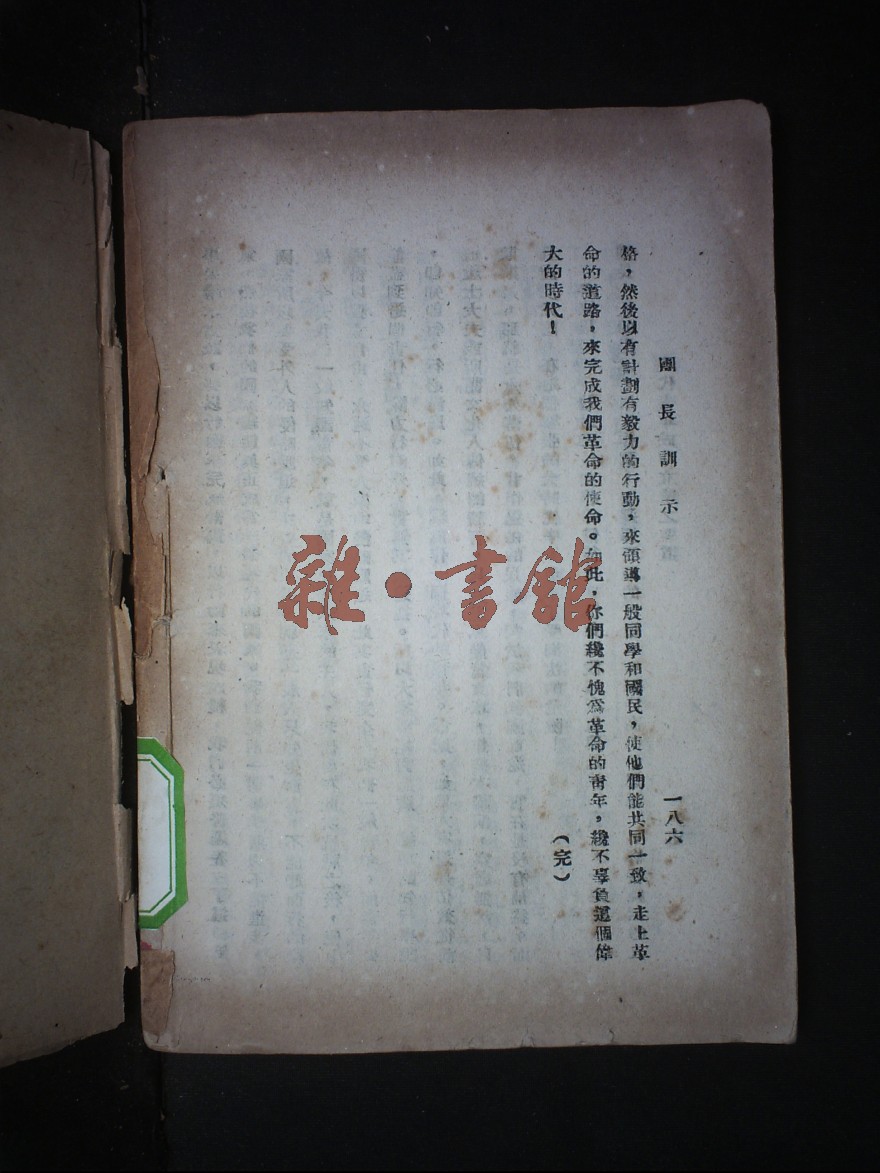 團長訓示
一八六
格，然後以有計劃有毅力的行動，來領導一般同學和國民，使他們能共同一致，走上革
命的道路，來完成我們革命的使命。如此，你們纔不愧爲革命的青年，纔不辜負這個偉
大的時代！
（完）
雜·書館